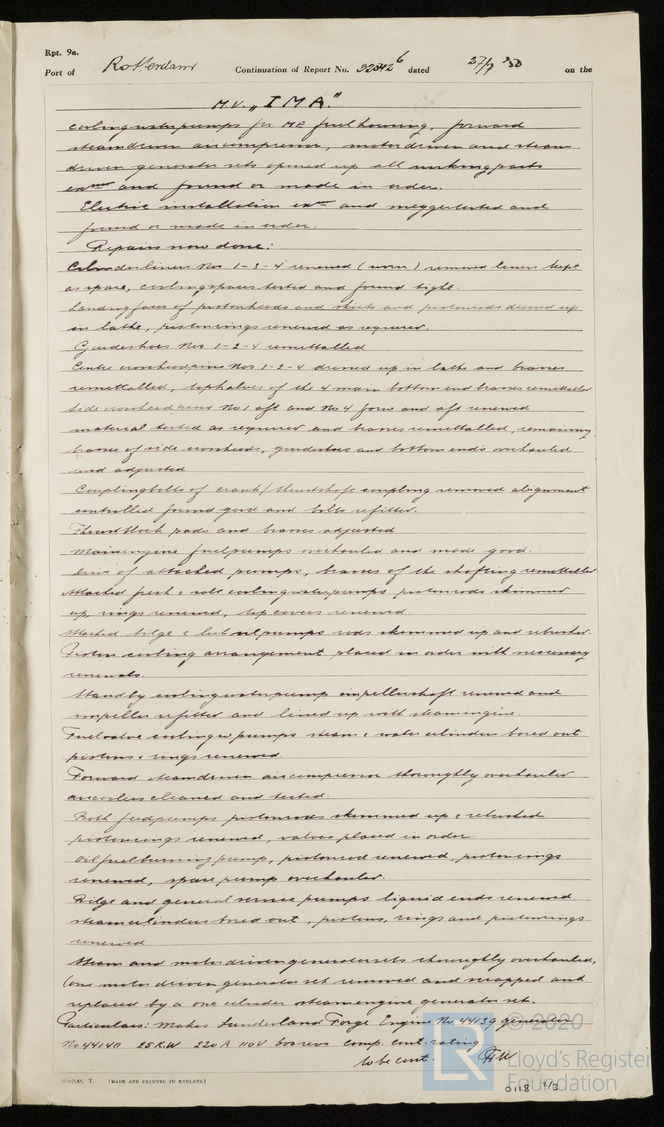 Rpt. 9a.
Port of Rotterdam Continuation of Report No. 32342 6 dated 27/9 '50 on the
M.V. „IMA."
cooling waterpumps for ME fuel housing, forward
steamdriven aircompressor, motordriven and steam
driven generator sets opened up all working parts
exned and found or made in order.
Electric installation exed and meggertested and
found or made in order.
Repairs now done:
Cylinderliners Nos 1-3-4 renewed (worn) removed liners kept
as spare, coolingspaces tested and found tight.
Landing faces of pistonheads and skirts and pistonrods dressed up
in lathe, pistonrings renewed as required.
Guideshoes Nos 1-2-4 remetalled
Centre crossheadpins Nos 1-2-4 dressed up in lathe and brasses
remetalled, tophalves of the 4 main bottom end brasses remetalled
Side crosshead pins No 1 aft and No 4 forw and aft renewed
material tested as required and brasses remetalled, remaining
brasses of side crossheads, guideshoes and bottom ends overhauled
and adjusted
Couplingbolts of crank/thrustshaft coupling removed alignment
controlled found good and bolts refitted.
Thrustblock pads and brasses adjusted
Mainengine fuelpumps overhauled and made good.
Drive of attached pumps, brasses of the shafting remetalled
Attached fresh & salt coolingwaterpumps pistonrods skimmed
up, rings renewed, top covers renewed
Attached bilge & lub oil pumps rods skimmed up and rebushed.
Piston cooling arrangement placed in order with necessary
renewals.
Standby coolingwaterpump impellershaft renewed and
impeller refitted and lined up with steamengine.
Fuelvalve cooling w pumps steam & water cilinder bored out
pistons & rings renewed.
Forward steamdriven aircompressor thoroughly overhauled
aircoolers cleaned and tested.
Both feedpumps pistonrods skimmed up & rebushed
pistonrings renewed, valves placed in order.
Oilfuelburning pump, pistonrod renewed, pistonrings
renewed, spare pump overhauled.
Bilge and general service pumps liquid ends renewed
steamcilinders bored out, pistons, rings and pistonrings
renewed
Steam and motordriven generatorsets thoroughly overhauled,
(one motor driven generator set removed and scrapped and
replaced by a one cilinder steamengine generator set.
Particulars: Makers Sunderland Forge Engine No 44139 generator
No 44140 25 K.W 220 A 110 V 600 revs comp. cont. rating
to be cont.
T. (MADE AND PRINTED IN ENGLAND)
0118 2/3
© 2020
LR
Lloyd's Register
Foundation